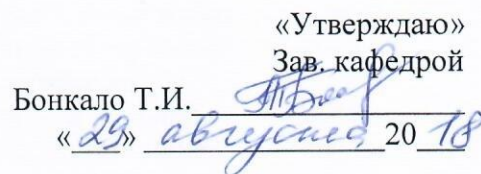 «Утверждаю»
Зав. кафедрой
Бонкало Т.И.
«29» августа 2018